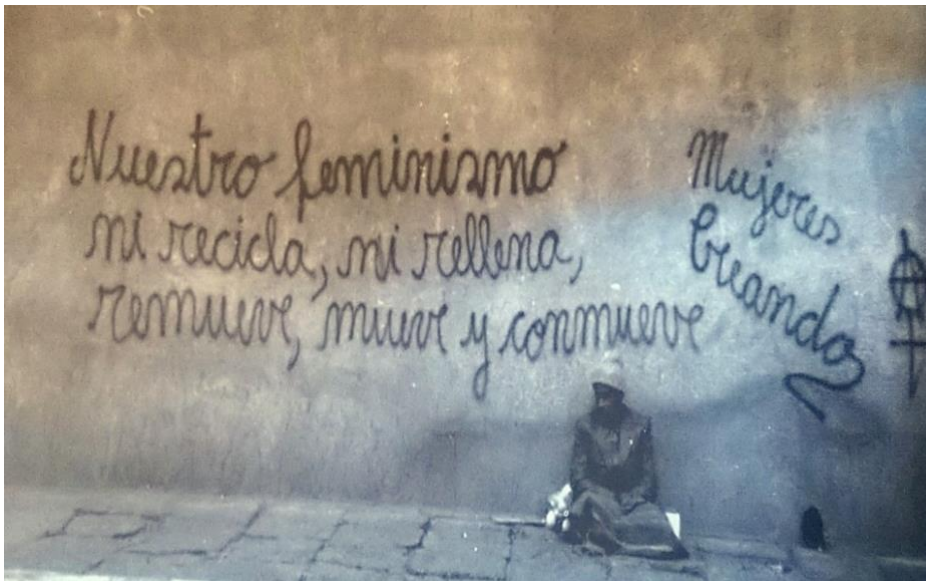 Nuestro feminismo
ni recicla, ni rellena,
remueve, mueve y conmueve
Mujeres
Creando